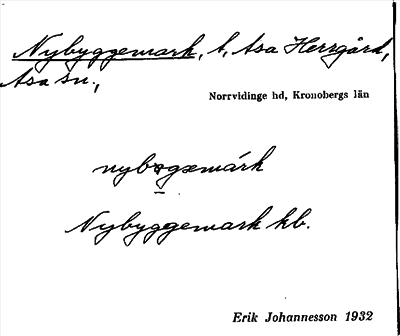 Nybyggemark, t, Asa Herrgård,
Asa sn.,
Norrvidinge hd, Kronobergs län
nybøgemárk
Nybyggemark kb.
Erik Johannesson 1932